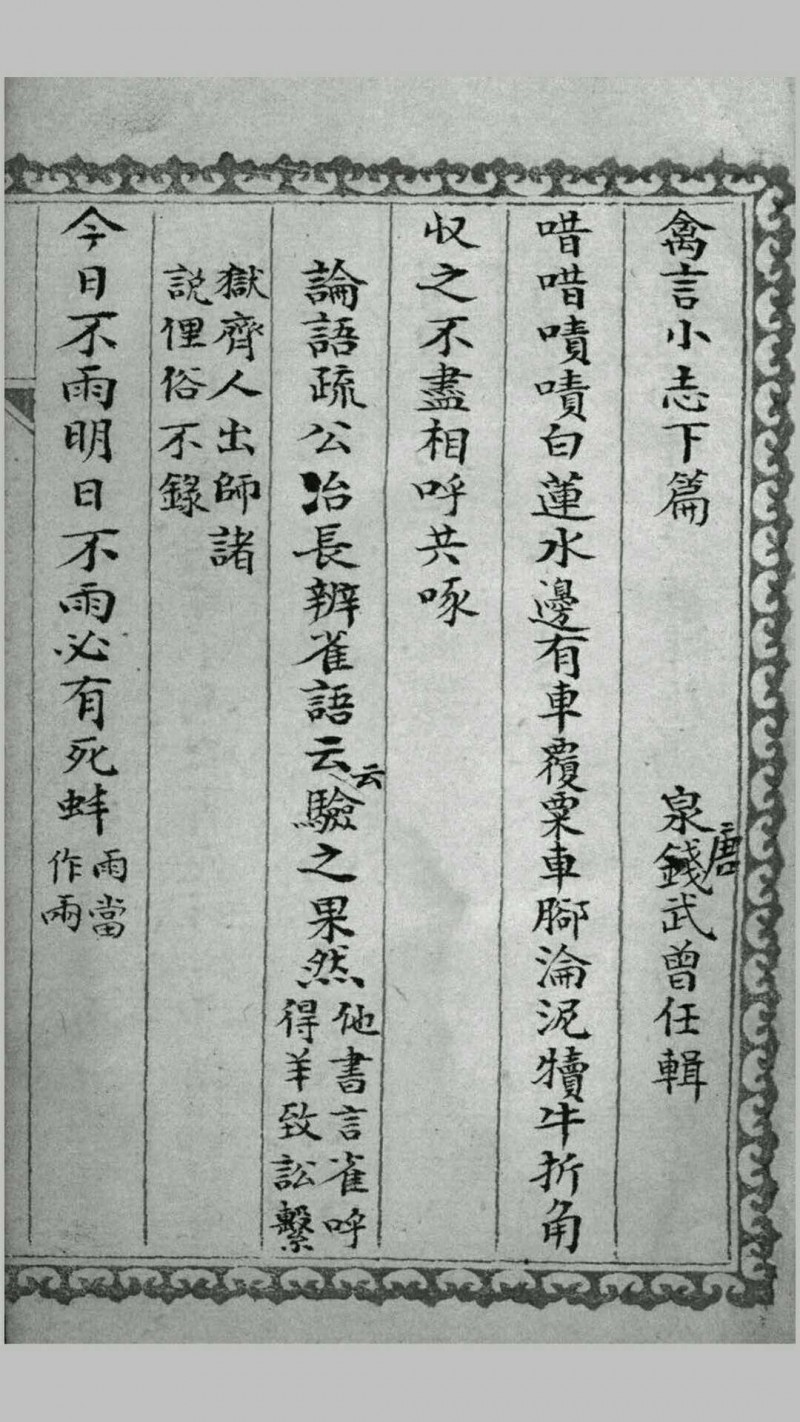 禽言小志下篇　泉唐錢武曾任輯
唶唶嘖嘖白蓮水邊有車覆粟車腳淪泥犢牛折角
収之不盡相呼共啄
論語疏公冶長辨雀語云云驗之果然
他書言雀呼
得羊致訟繫
獄齊人出師諸
説俚俗不錄
今日不雨明日不雨必有死蚌
雨當
作兩